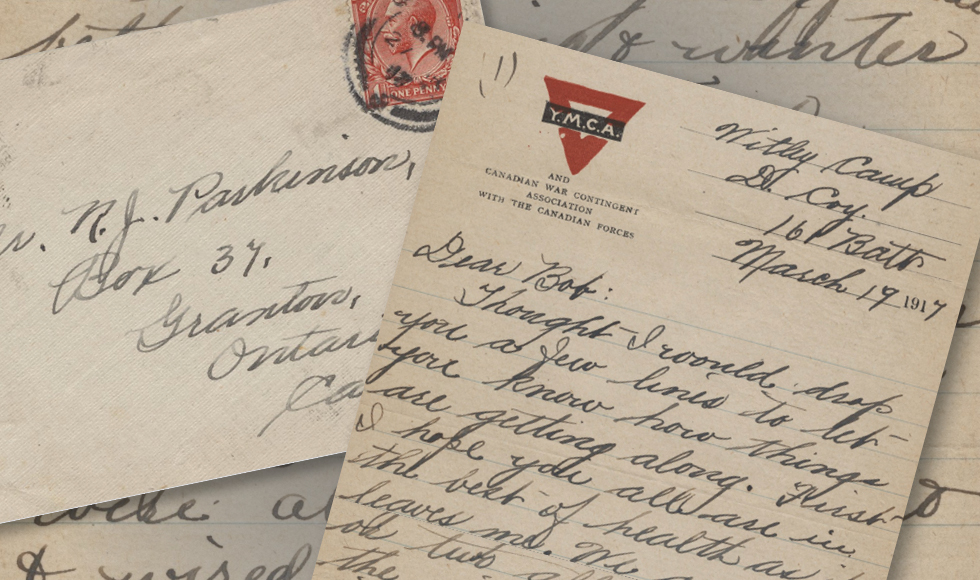 N.J. Parkinson,
Box 37,
Granton,
Ontari
Ca
ONE PENNY
(1)
Y.M.C.A.
AND
CANADIAN WAR CONTINGENT
ASSOCIATION
WITH THE CANADIAN FORCES
Witley Camp
D. Coy.
161 Batt
March 19 1917
Dear Bob:
Thought I would drop
you a few lines to let
you know how things
are getting along. First
I hope you all are in
the best of health as
leaves me. We
the
winter
& wired